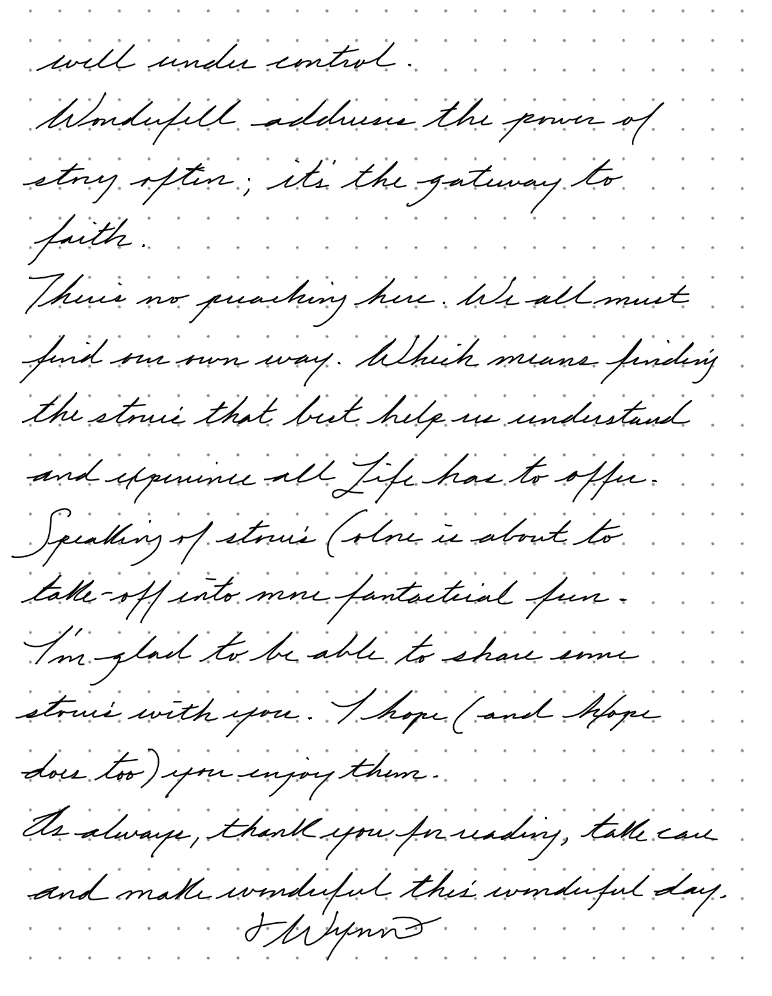 well under control.
Wonderfell addresses the power of
story often; it's the gateway to
faith.
There's no preaching here. We all must
find our own way. Which means finding
the stories that best help us understand
and experience all Life has to offer.
Speaking of stories Colne is about to
take-off into more fantastical fun.
I'm glad to be able to share some
stories with you. I hope (and Hope
does too) you enjoy them.
As always, thank you for reading, take care
and make wonderful this wonderful day.
Wynn